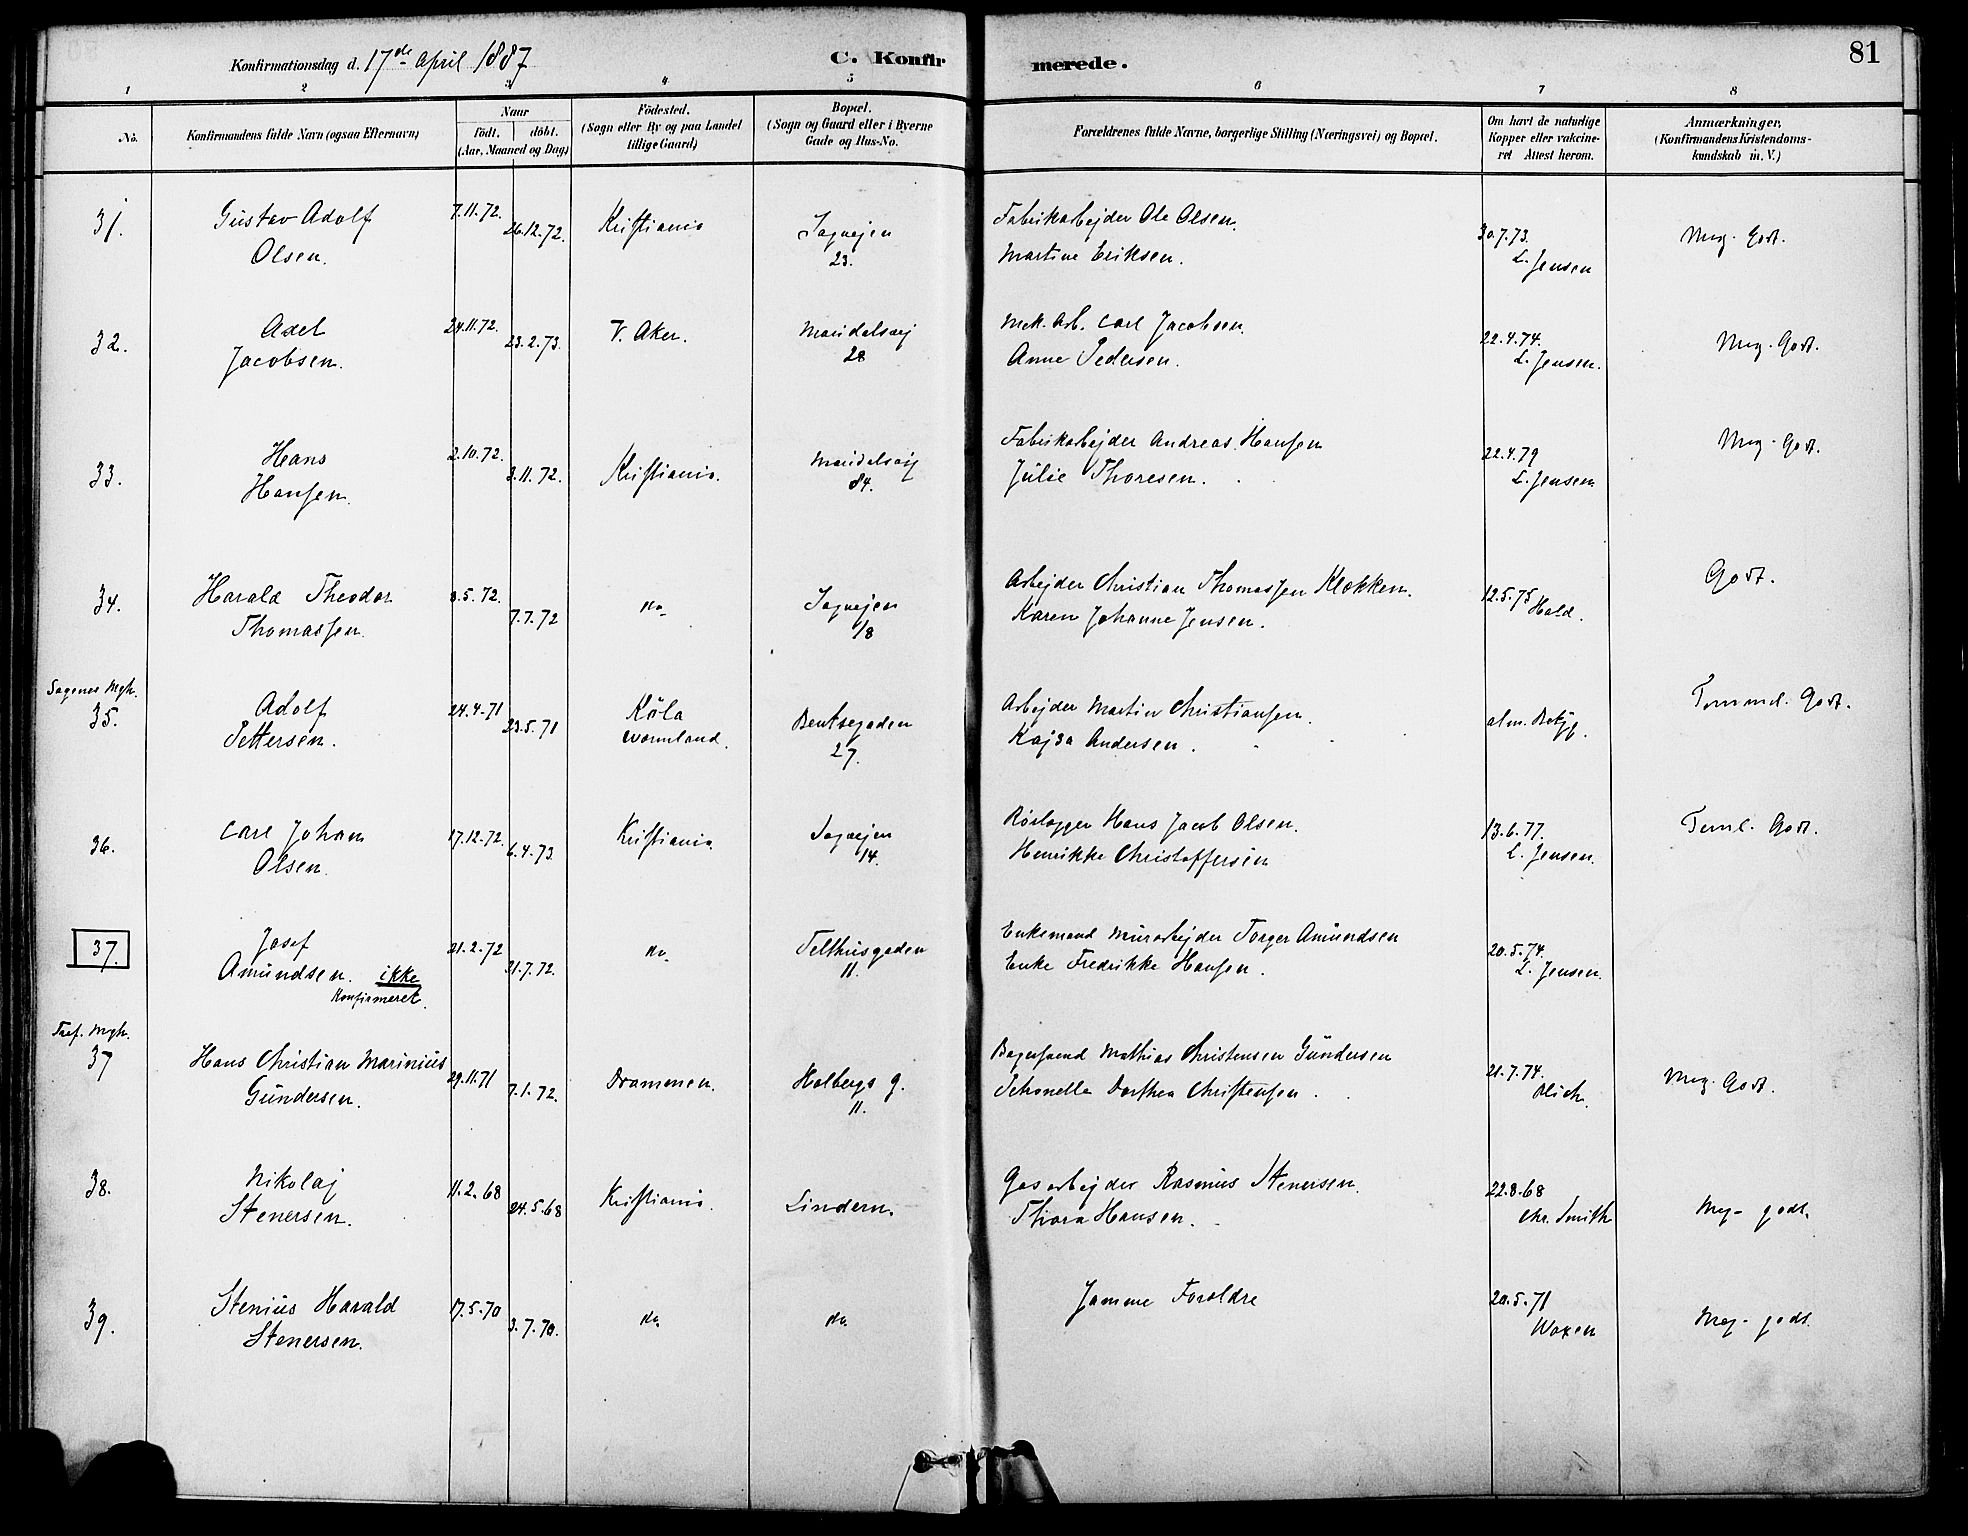 Konfirmationsdag d. 17de April 1887
C. Konfir merede.
81
1 2 3 4 5 6 7 8
No.
Konfirmandens fulde Navn (ogsaa Efternavn)
Naar
födt. döbt.
(Aar, Maaned og Dag)
Födested.
(Sogn eller By og paa Landet
tillige Gaard)
Bopæl.
(Sogn og Gaard eller i Byerne
Gade og Hus-No.
Forældrenes fulde Navne, borgerlige Stilling (Næringsvei) og Bopæl.
Om havt de naturlige
Kopper eller vakcine-
ret Attest herom.
Anmærkninger,
(Konfirmandens Kristendoms-
kundskab m. V.)
31. Gustav Adolf 7.11.72. 26.12.72. Kristiania Sagvejen Fabrikarbejder Ole Olsen. 30.7.73. Meg. Godt.
Olsen. 23. Martine Eriksen. L. Jensen
32. Axel 24.11.72. 23.2.73. V. Aker. Maridalsvej Mek. Arb. Carl Jacobsen. 22.4.74. Meg. Godt.
Jacobsen. 28 Anne Pedersen. L. Jensen.
33. Hans 2.10.72. 3.11.72. Kristiania. Maridalsvej Fabrikarbejder Andreas Hansen 22.4.79 Meg. Godt.
Hansen. 84. Julie Thoresen. L. Jensen
34. Harald Theodor 8.5.72. 7.7.72 do Sagvejen Arbejder Christian Thomassen Klokken. 12.5.75 Godt.
Thomassen. 18 Karen Johanne Jensen. Hald.
Sagenes Mgh.
35. Adolf 24.4.71 23.5.71 Köla Bentsegaden Arbejder Martin Christiansen. alm. Temmel. Godt.
Pettersen. Wormland. 27. Kajsa Andersen.
36. Carl Johan 17.12.72. 6.4.73. Kristiania. Sagvejen Rörlægger Hans Jacob Olsen. 13.6.77. Teml. Godt.
Olsen. 14. Henrikke Christoffersen L. Jensen.
37. Josef 21.2.72 31.7.72. do Telthusgaden Enkemand Murarbejder Torger Amundsen 20.5.74.
Amundsen. ikke 11. Enke Fredrikke Hansen. L. Jensen.
Konfirmeret.
Tref. Mgh.
37 Hans Christian Marinius 29.11.71 7.1.72. Drammen. Holbergs g. Bagersvend Mathias Christensen Gundersen 21.7.74. Meg. Godt.
Gundersen. 11. Petronelle Dorthea Christensen.
38. Nikolaj 11.2.68 24.5.68 Kristiania. Lindern. Gasarbejder Rasmus Stenersen. 22.8.68 Meg. godt.
Stenersen. Thora Hansen. Chr. Smith
39. Stenius Harald 17.5.70 3.7.70. do do Samme Foreldre 20.5.71 Meg. godt.
Stenersen. Woxen